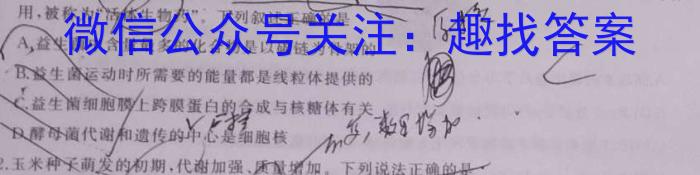 用,被称为"活体生物药"。下列叙述正确的是
微信公众号关注：趣找答案
A.益生菌中含量最多的化合物是以碳链为骨架的
B.益生菌运动时所需要的能量都是线粒体提供的
C.益生菌细胞膜上跨膜蛋白的合成与核糖体有关
D.酵母菌代谢和遗传的中心是细胞核
2.玉米种子萌发的初期,代谢加强、质量增加。下列说法正确的是